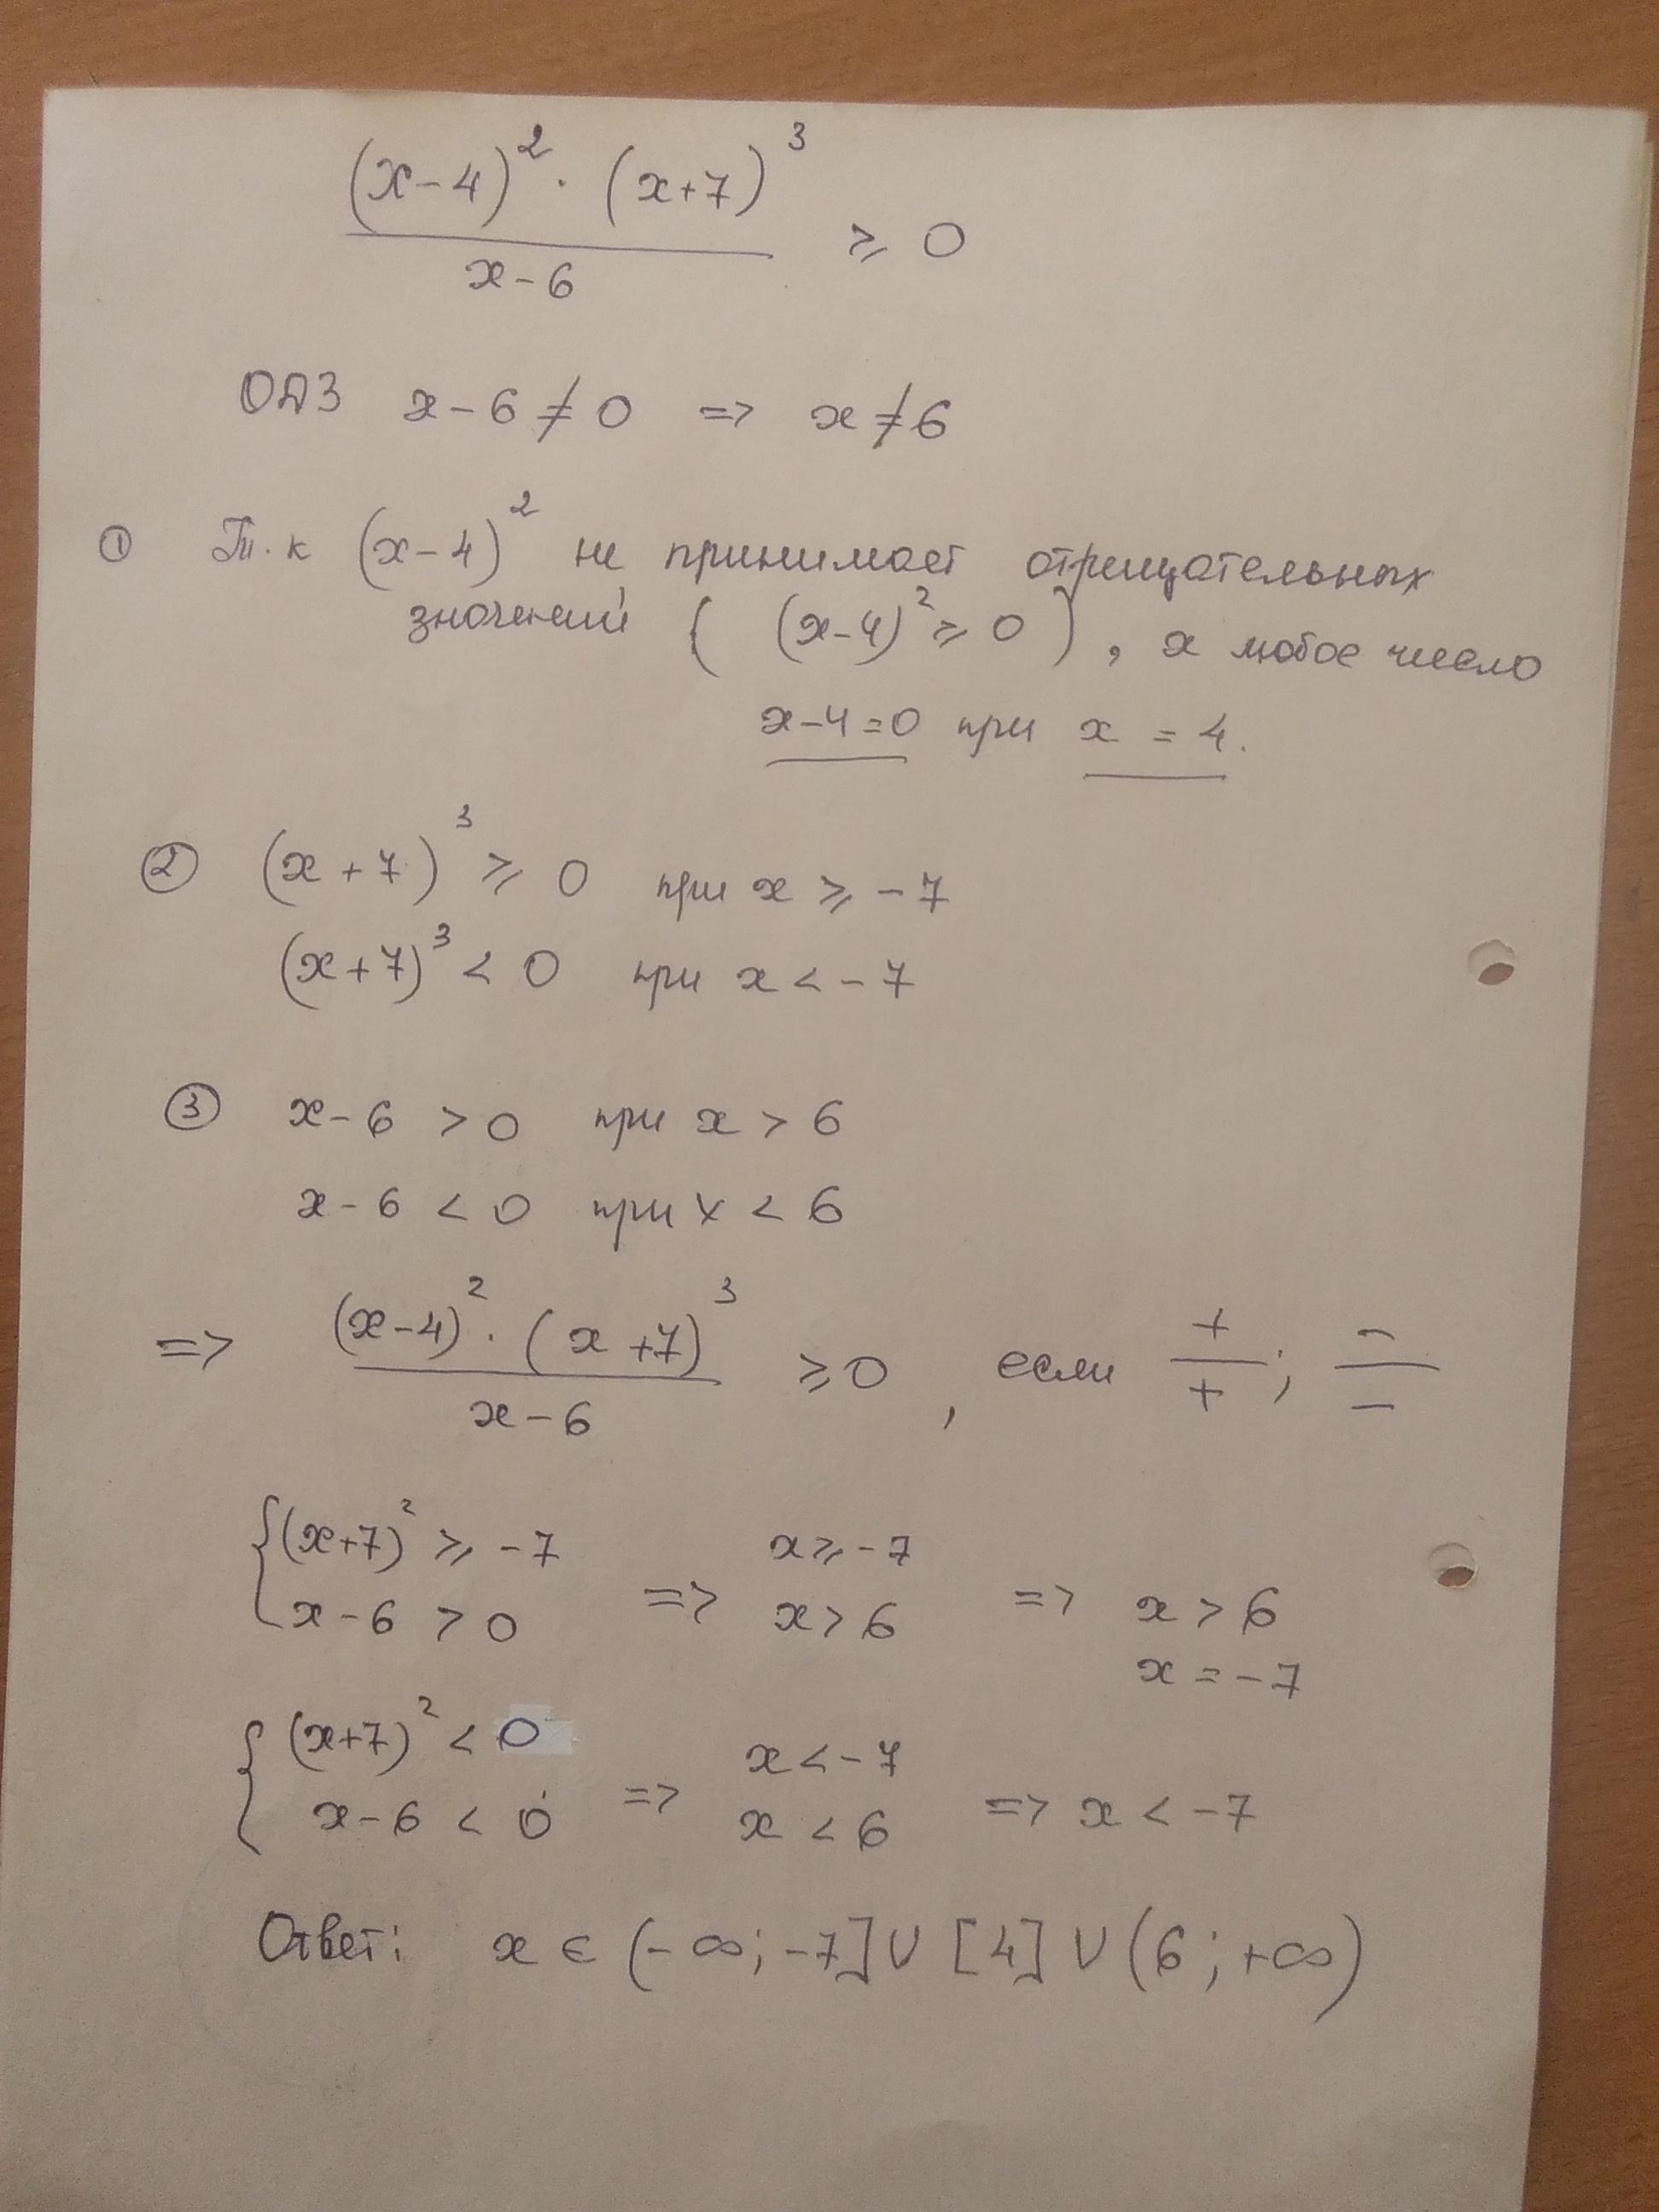 (x-4)² · (x+7)³
x-6
≥ 0
ОДЗ x-6≠0 => x≠6
① Т.к (x-4)² не принимает отрицательных
значений ( (x-4)² ≥ 0 ), x любое число
x-4=0 при x = 4.
② (x+7)³ ≥ 0 при x ≥ -7
(x+7)³ < 0 при x < -7
③ x-6 > 0 при x > 6
x-6 < 0 при x < 6
=> (x-4)² · (x+7)³ / x-6 ≥0, если +/+ ; -/-
{ (x+7)² ≥ -7 x≥-7
x-6 > 0 => x>6 => x > 6
x = -7
{ (x+7)² < 0 x<-7
x-6 < 0 => x < 6 => x < -7
Ответ: x ∈ (-∞; -7] ∪ [4] ∪ (6; +∞)